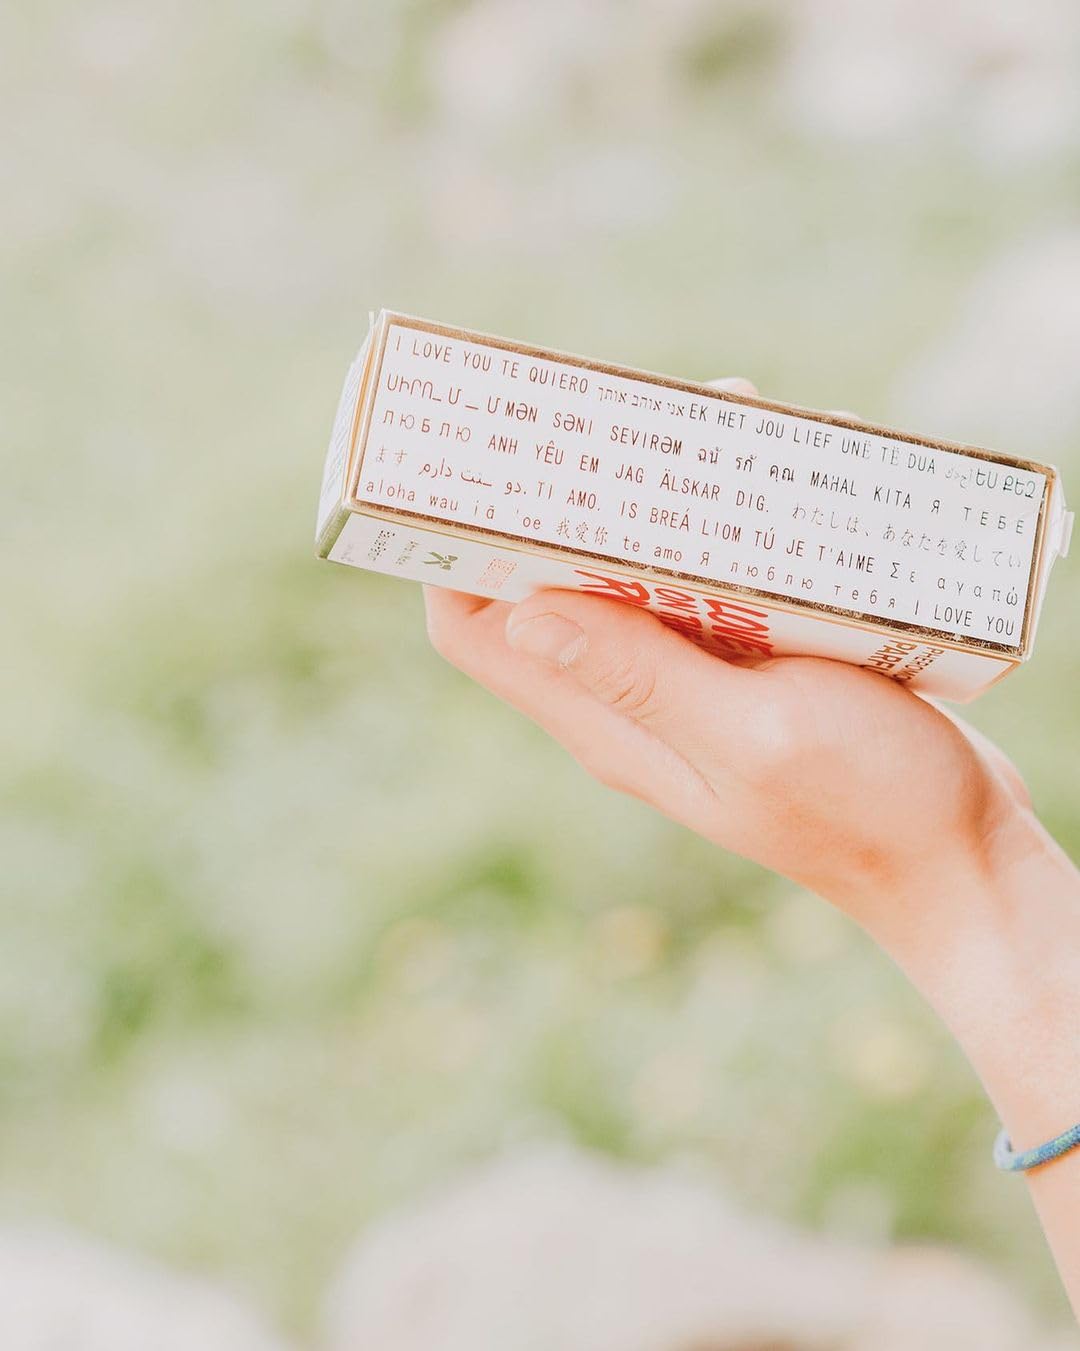 I LOVE YOU TE QUIERO אני אוהב אותך EK HET JOU LIEF UNË TË DUA ԵՍ ՔԵԶ
ՍԻՐՈՒՄ Մ MƏN SƏNI SEVIRƏM ฉัน รัก คุณ MAHAL KITA Я ТЕБЕ
ЛЮБЛЮ ANH YÊU EM JAG ÄLSKAR DIG. わたしは、あなたを愛してい
ます دارم دو. TI AMO. IS BREÁ LIOM TÚ JE T'AIME Σε αγαπώ
aloha wau iā 'oe 我愛你 te amo Я люблю тебя I LOVE YOU
LOVE
ON